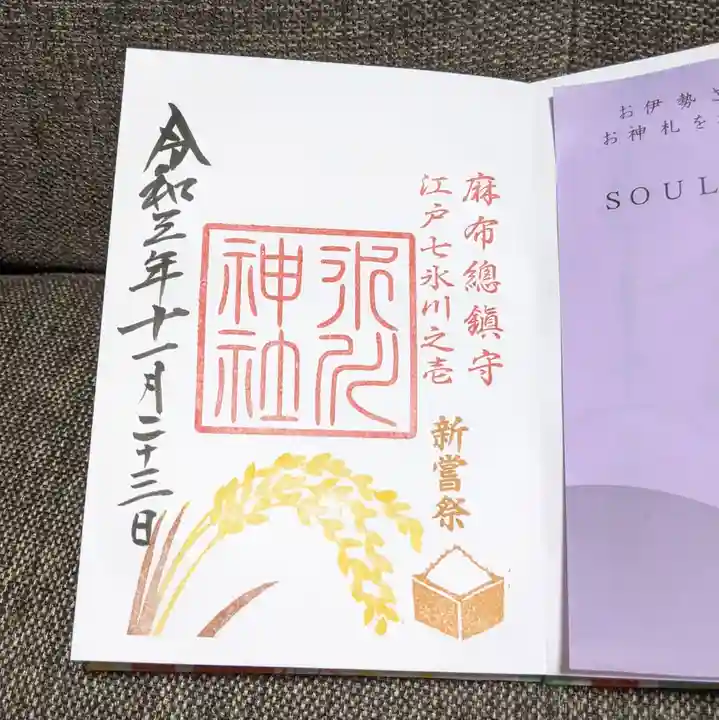 麻布總鎮守
江戸七氷川之壱
新嘗祭
氷川
神社
令和三年十一月二十三日
お伊勢さ
お神札を
SOUL